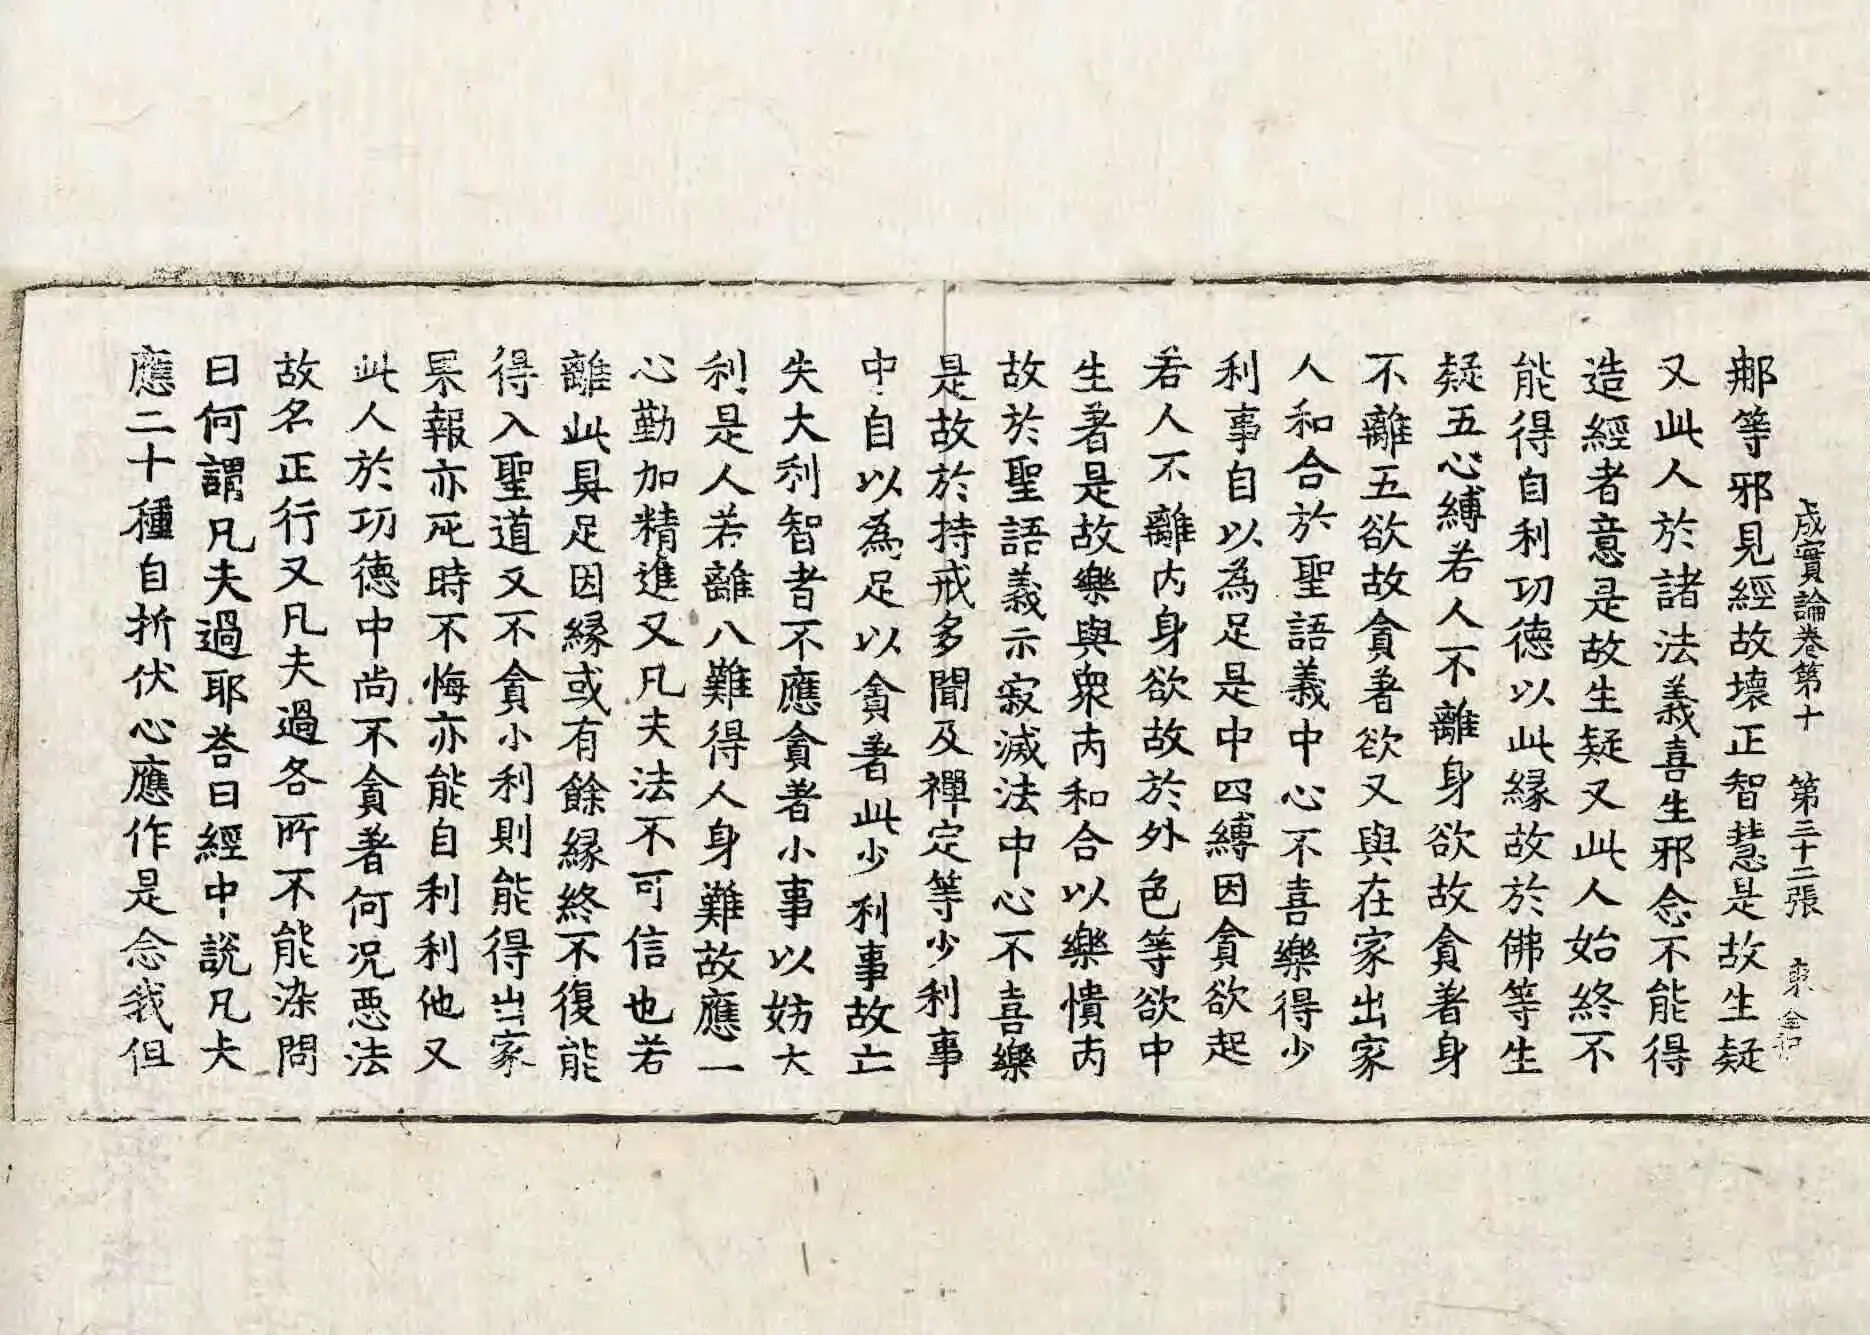 成實論卷第十　第三十二張　東
那等邪見經故壞正智慧是故生疑
又此人於諸法義喜生邪念不能得
造經者意是故生疑又此人始終不
能得自利功德以此緣故於佛等生
疑五心縛若人不離身欲故貪著身
不離五欲故貪著欲又與在家出家
人和合於聖語義中心不喜樂得少
利事自以為足是中四縛因貪欲起
若人不離內身欲故於外色等欲中
生著是故樂與衆內和合以樂憒内
故於聖語義示寂滅法中心不喜樂
是故於持戒多聞及禪定等少利事
中自以為足以貪著此少利事故亡
失大利智者不應貪著小事以妨大
利是人若離八難得人身難故應一
心勤加精進又凡夫法不可信也若
離此具足因緣或有餘緣終不復能
得入聖道又不貪小利則能得出家
果報亦死時不悔亦能自利利他又
此人於功德中尚不貪著何況惡法
故名正行又凡夫過各所不能染問
曰何謂凡夫過耶荅曰經中說凡夫
應二十種自折伏心應作是念我但